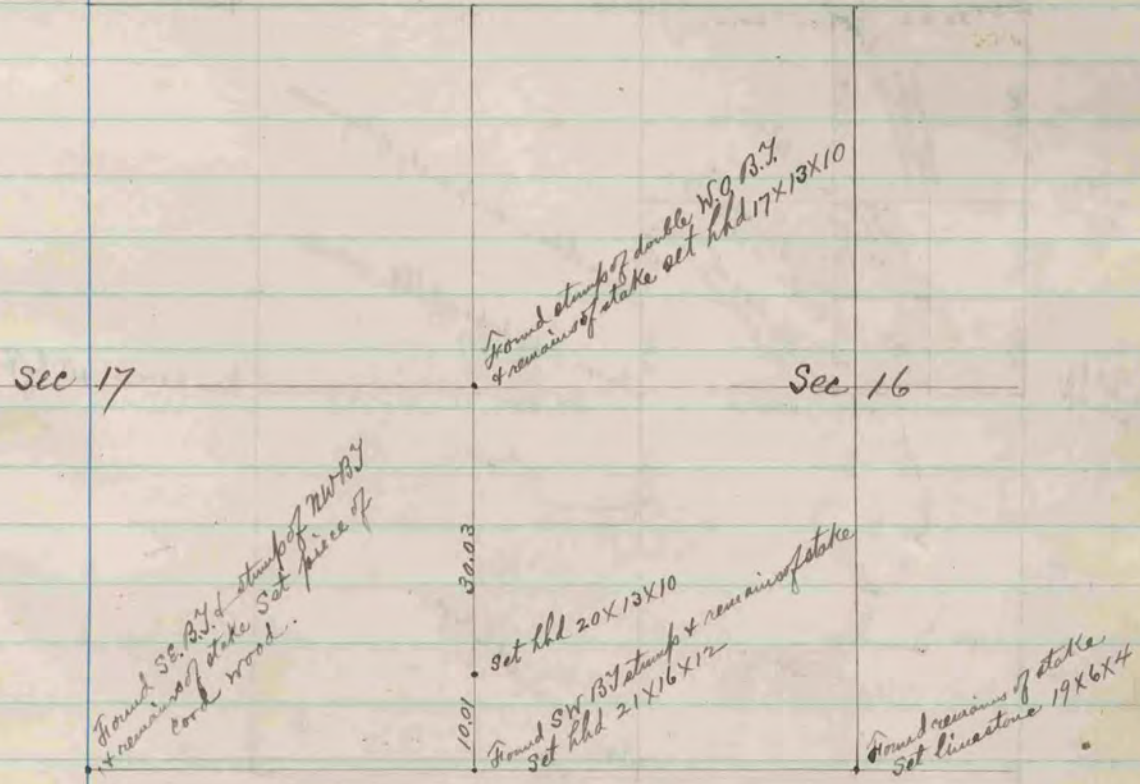 Found stump of double W.O. B.T.
& remains of stake set hhd 17X13X10
Sec 17
Sec 16
Found SE. B.T. & stump of NW BT
& remains of stake Set piece of
cord wood.
30.03
Set hhd 20X13X10
10.01
Found SW BT stump & remains of stake
Set hhd 21X16X12
Found remains of stake
Set limestone 19X6X4